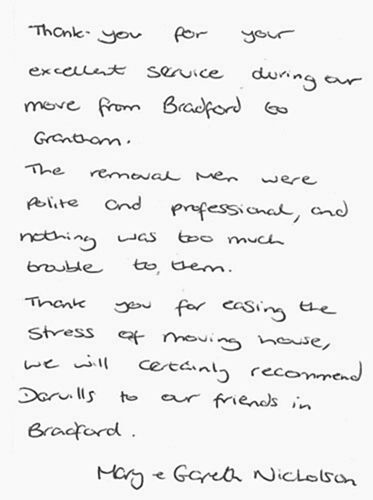 Thank-you for your
excellent service during our
move from Bradford to
Grantham.
The removal men were
polite and professional, and
nothing was too much
trouble to them.
Thank you for easing the
stress of moving house,
we will certainly recommend
Darvills to our friends in
Bradford.
Mary & Gareth Nicholson